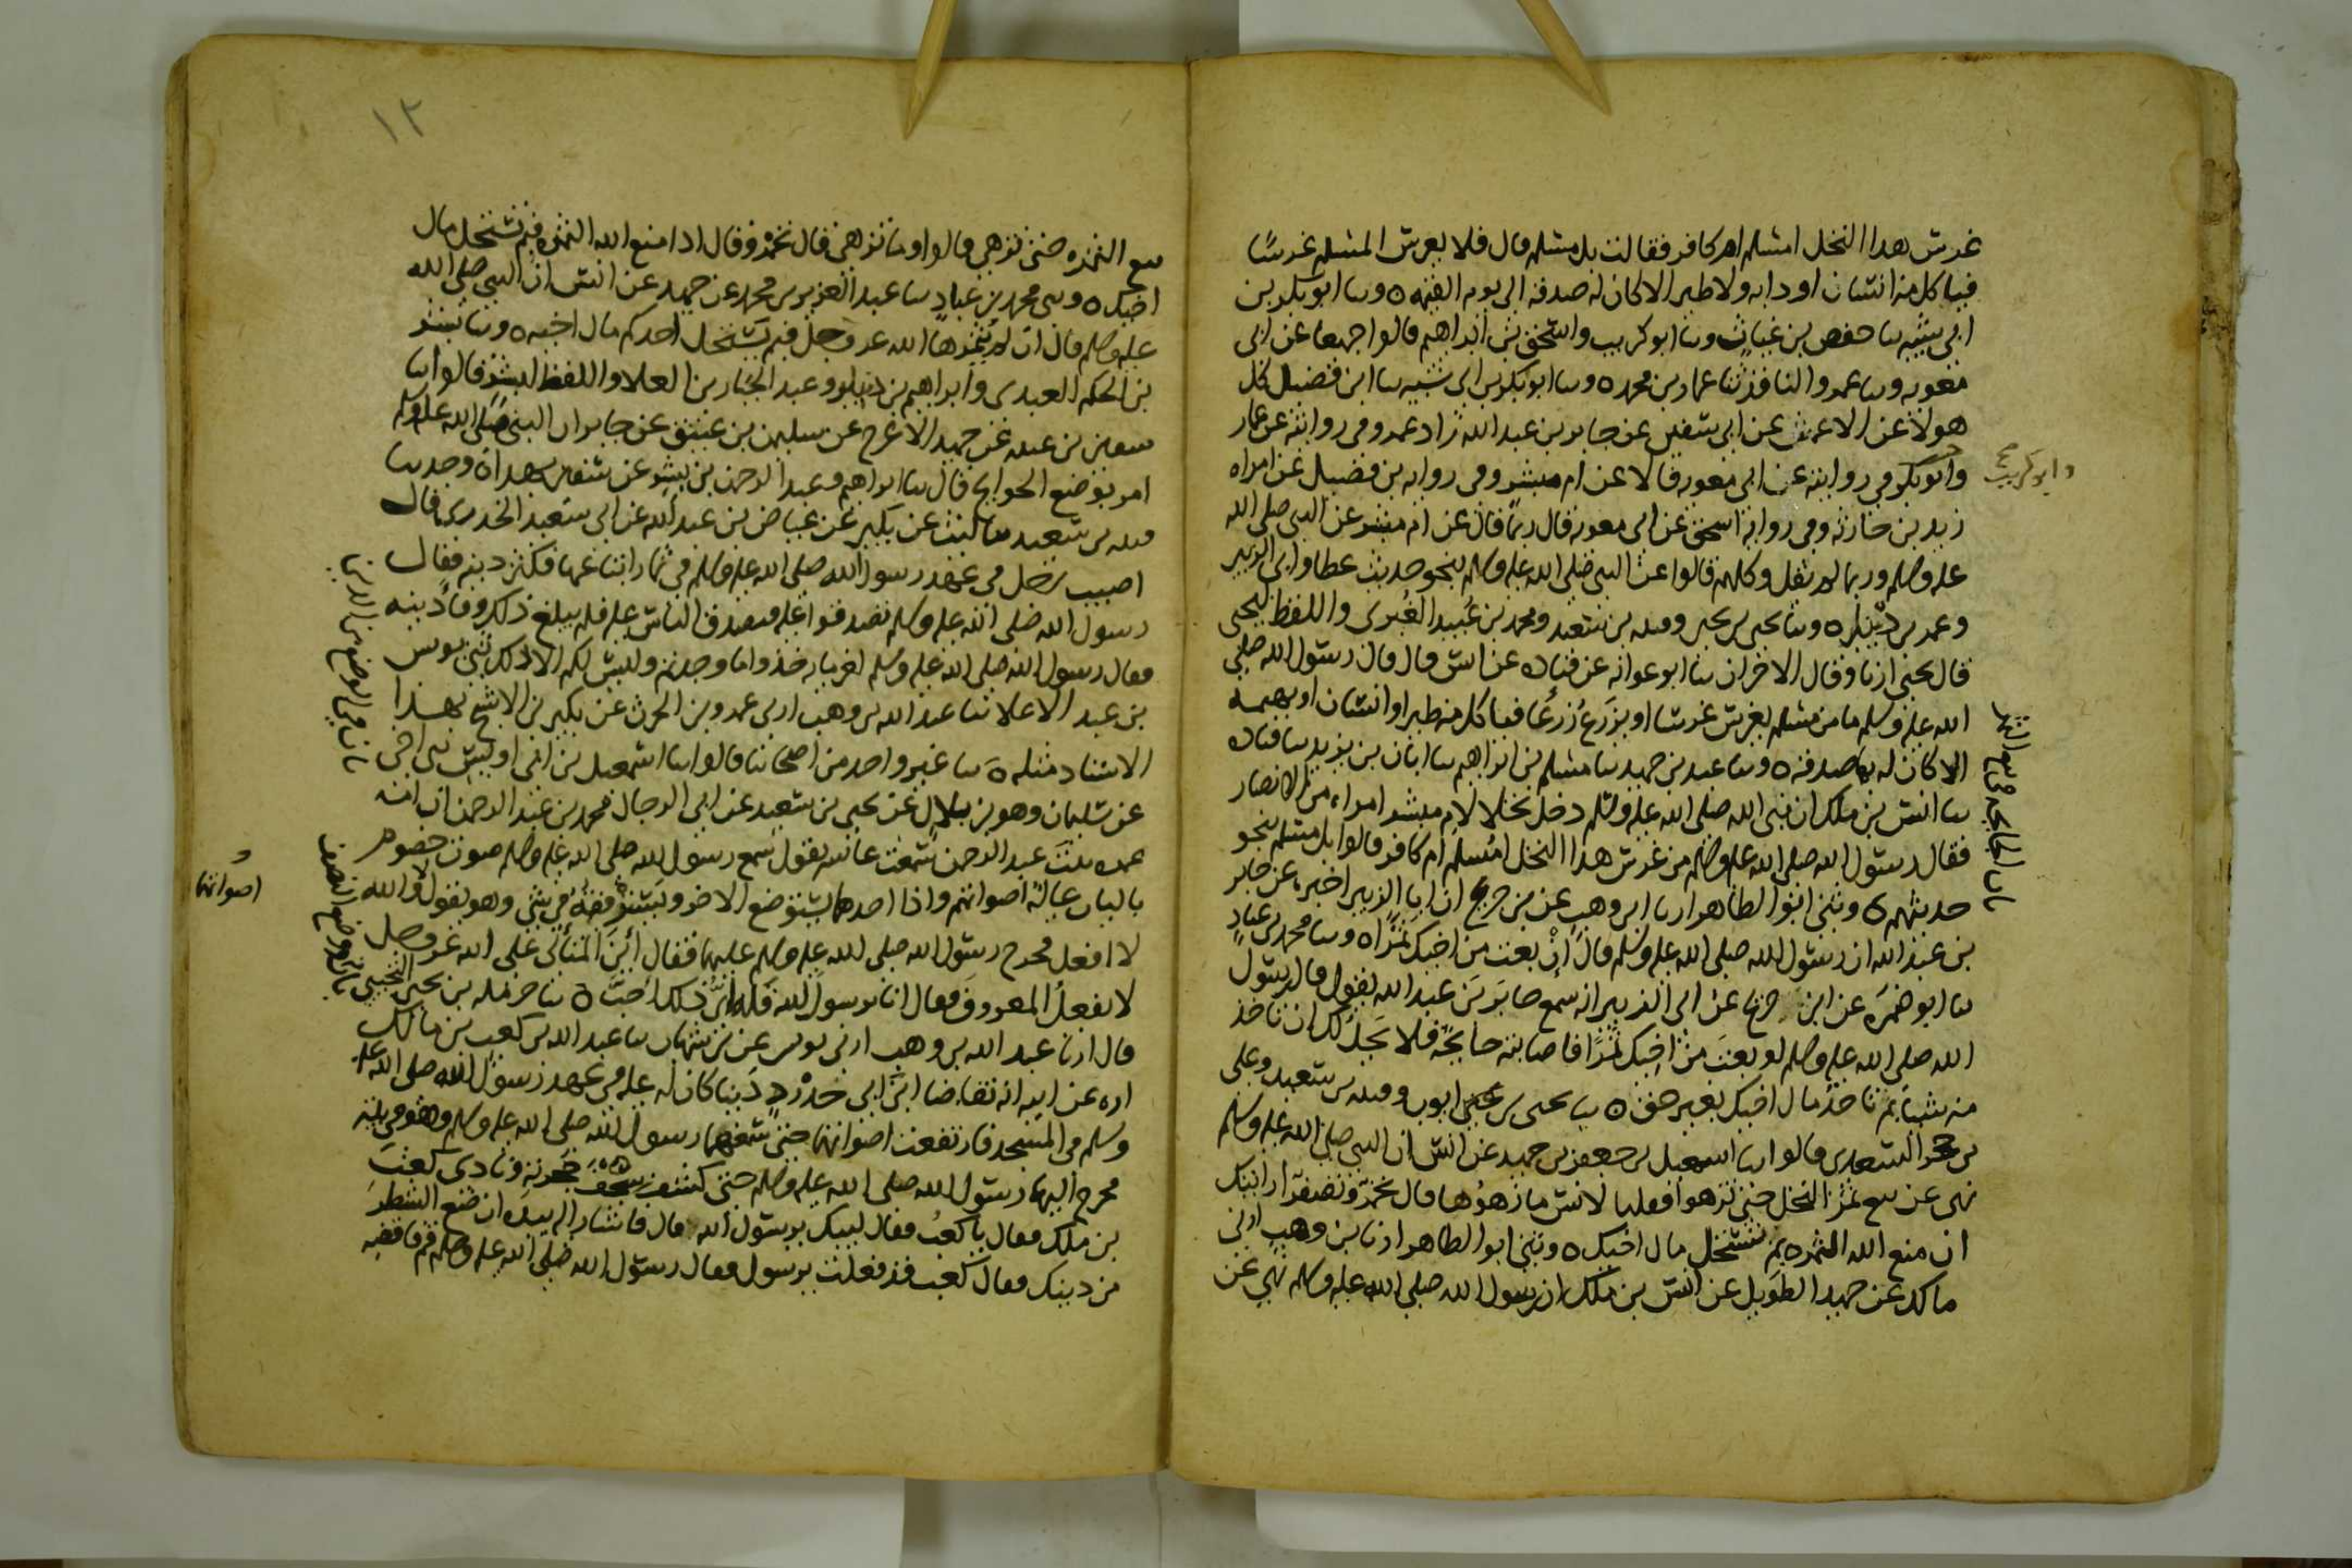 غرس هذا النخل امسلم ام كافر فقالت بل مسلم قال فلا يغرس المسلم غرسًا
فياكل منه انسان او دابه ولا طير الا كان له صدقه الى يوم القيمه ٥ وسا ابو بكر بن
ابى شيبه سا حفص بن غياث وسا ابو كريب واسحق بن ابراهيم قالوا جميعا عن ابى
معويه وسا عمرو الناقد ثنا عمار بن محمد ٥ وسا ابو بكر بن ابى شيبه سا ابن فضيل كل
هولا عن الاعمش عن ابى سفين عن جابر بن عبد الله زاد عمرو فى روايته عن عمار
وابو بكر فى روايته عن ابى معويه قالا عن ام مبشر وفى روايه بن فضيل عن امراه
وابو كريب
زيد بن حارثه وفى رواية اسحق عن ابى معويه قال ربما قال عن ام مبشر عن النبى صلى الله
عليه وسلم وربما لم يقل وكلهم قالوا عن النبى صلى الله عليه وسلم بنحو حديث عطا وابى الزبير
وعمرو بن دينار ٥ وسا يحيى بن يحيى وقتيبه بن سعيد ومحمد بن عُبيد الغُبرى واللفظ ليحيى
قال يحيى ارنا وقال الاخران سا ابو عوانه عن قتاده عن انس قال قال رسول الله صلى
الله عليه وسلم ما من مسلم يغرس غرسا او يزرع زرعًا فياكل منه طير او انسان او بهيمه
الا كان له به صدقه ٥ وسا عبد بن حميد سا مسلم بن ابراهيم سا ابان بن يزيد سا قتاده
سا انس بن ملك ان نبى الله صلى الله عليه وسلم دخل نخلا لام مبشر امراه من الانصار
فقال رسول الله صلى الله عليه وسلم من غرس هذا النخل امُسلم ام كافر قالوا بل مسلم بنحو
حديثهم ٥ وثنى ابو الطاهر ارنا ابن وهب عن بن جريج ان ابا الزبير اخبره عن جابر
بن عبد الله ان رسول الله صلى الله عليه وسلم قال اِنْ بعت من اخيك ثمرًا ٥ وسا محمد بن عبادٍ
سا ابو ضمرَه عن ابن جريج عن ابى الزبير انه سمع جابر بن عبد الله يقول قال رسول
الله صلى الله عليه وسلم لو بعتَ من اخيك ثمرًا فاصابته جايحَه فلا يَحِلُّ لك ان تاخذ
منه شيا بم تاخذ مال اخيك بغير حق ٥ سا يحيى بن ايوب وقتيبه بن سعيد وعلى
بن حجر السعدى قالوا سا اسمعيل بن جعفر عن حميد عن انس ان النبى صلى الله عليه وسلم
نهى عن بيع ثمر النخل حتى تزهوا فقلنا لانس ما زهوُها قال تحمَرّ وتصفرّ ارايتك
ان منع الله الثمره بم تستحل مال اخيك ٥ وثنى ابو الطاهر ارنا بن وهب ارنى
مالك عن حميد الطويل عن انس بن ملك ان رسول الله صلى الله عليه وسلم نهى عن
١٢
بيع الثمره حتى تزهى قالوا وما تزهى قال تحمرّ وقال اذا منع الله الثمره فبم تستحل مال
اخيك ٥ وسى محمد بن عبادٍ سا عبد العزيز بن محمد عن حميد عن انس ان النبى صلى الله
عليه وسلم قال ان لم يُثمرها الله عز وجل فبم يَستحل احدكم مال اخيه ٥ وسا بشر
بن الحكم العبدى وابراهيم بن دينار وعبد الجبار بن العلا واللفظ لبشر قالوا سا
سفين بن عيينه عن حميد الاعرج عن سليمن بن عتيق عن جابر ان النبى صلى الله عليه وسلم
امر بوضع الجوايح قال سا ابراهيم وعبد الرحمن بن بشر عن سفين بهذا ٥ وحدسا
قتيبه بن سعيد سا ليث عن بكير عن عياض بن عبد الله عن ابى سعيد الخدرى قال
اصيب رجل فى عهد رسول الله صلى الله عليه وسلم فى ثمار ابتاعها فكثر دينه فقال
رسول الله صلى الله عليه وسلم تصدقوا عليه فتصدق الناس عليه فلم يبلغ ذلك وفا دينه
فقال رسول الله صلى الله عليه وسلم لغرمايه خذوا ما وجدتم وليس لكم الا ذلك ثنى يونس
بن عبد الاعلا سا عبد الله بن وهب ارنى عمرو بن الحرث عن بكير بن الاشج بهذا
الاسناد مثله ٥ سا غير واحد من اصحابنا قالوا سا اسمعيل بن ابى اويس ثنى اخى
عن سليمان وهو بن بلالٍ عن يحيى بن سعيد عن ابى الرجال محمد بن عبد الرحمن ان امه
عمره بنتَ عبد الرحمن سمعت عايشه تقول سمع رسول الله صلى الله عليه وسلم صوت خصوم
بالباب عاليَةً اصواتهم واذا احدهما يستوضع الاخر ويسترفقه فى شى وهو يقول لا والله
اصواتهما
لا افعل فخرج رسول الله صلى الله عليه وسلم عليهما فقال اَينَ المتألى على الله عز وجل
لا يفعلُ المعروف فقال انا يرسول الله فله اىُّ ذلك احبَّ ٥ سا حرمله بن يحيى التجيبى
قال ارنا عبد الله بن وهب ارنى يونس عن بن شهاب سا عبد الله بن كعب بن مالك
اره عن ابيه انه تقاضا ابنَ ابى حدْرَدٍ دَينا كان له عليه فى عهد رسول الله صلى الله عليه
وسلم فى المسجد فارتفعت اصواتهما حتى سمعهما رسول الله صلى الله عليه وسلم وهو فى بيته
فخرج اليهما رسول الله صلى الله عليه وسلم حتى كشف سجف حجرته ونادى كعبَ
بن ملك فقال يا كعبُ فقال لبيك يرسول الله قال فاشار اليه بيده ان ضع الشطرَ
من دينك فقال كعب قد فعلت يرسول فقال رسول الله صلى الله عليه وسلم قم فاقضه